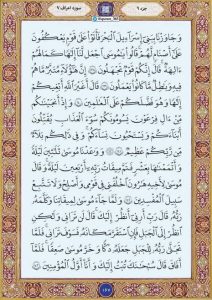 جزء ٩
سورة اعراف ٧
وَجَٰوَزْنَا بِبَنِىٓ إِسْرَٰٓءِيلَ ٱلْبَحْرَ فَأَتَوْا۟ عَلَىٰ قَوْمٍ يَعْكُفُونَ
عَلَىٰٓ أَصْنَامٍ لَّهُمْ قَالُوا۟ يَٰمُوسَى ٱجْعَل لَّنَآ إِلَٰهًا كَمَا لَهُمْ
ءَالِهَةٌ قَالَ إِنَّكُمْ قَوْمٌ تَجْهَلُونَ ١٣٨ إِنَّ هَٰٓؤُلَآءِ مُتَبَّرٌ مَّا هُمْ
فِيهِ وَبَٰطِلٌ مَّا كَانُوا۟ يَعْمَلُونَ ١٣٩ قَالَ أَغَيْرَ ٱللَّهِ أَبْغِيكُمْ
إِلَٰهًا وَهُوَ فَضَّلَكُمْ عَلَى ٱلْعَٰلَمِينَ ١٤٠ وَإِذْ أَنجَيْنَٰكُم
مِّنْ ءَالِ فِرْعَوْنَ يَسُومُونَكُمْ سُوٓءَ ٱلْعَذَابِ يُقَتِّلُونَ
أَبْنَآءَكُمْ وَيَسْتَحْيُونَ نِسَآءَكُمْ وَفِى ذَٰلِكُم بَلَآءٌ
مِّن رَّبِّكُمْ عَظِيمٌ ١٤١ وَوَٰعَدْنَا مُوسَىٰ ثَلَٰثِينَ لَيْلَةً
وَأَتْمَمْنَٰهَا بِعَشْرٍ فَتَمَّ مِيقَٰتُ رَبِّهِۦٓ أَرْبَعِينَ لَيْلَةً وَقَالَ
مُوسَىٰ لِأَخِيهِ هَٰرُونَ ٱخْلُفْنِى فِى قَوْمِى وَأَصْلِحْ وَلَا تَتَّبِعْ
سَبِيلَ ٱلْمُفْسِدِينَ ١٤٢ وَلَمَّا جَآءَ مُوسَىٰ لِمِيقَٰتِنَا وَكَلَّمَهُۥ
رَبُّهُۥ قَالَ رَبِّ أَرِنِىٓ أَنظُرْ إِلَيْكَ قَالَ لَن تَرَىٰنِى وَلَٰكِنِ
ٱنظُرْ إِلَى ٱلْجَبَلِ فَإِنِ ٱسْتَقَرَّ مَكَانَهُۥ فَسَوْفَ تَرَىٰنِى فَلَمَّا
تَجَلَّىٰ رَبُّهُۥ لِلْجَبَلِ جَعَلَهُۥ دَكًّا وَخَرَّ مُوسَىٰ صَعِقًا فَلَمَّآ
أَفَاقَ قَالَ سُبْحَٰنَكَ تُبْتُ إِلَيْكَ وَأَنَا۠ أَوَّلُ ٱلْمُؤْمِنِينَ ١٤٣
١٦٧